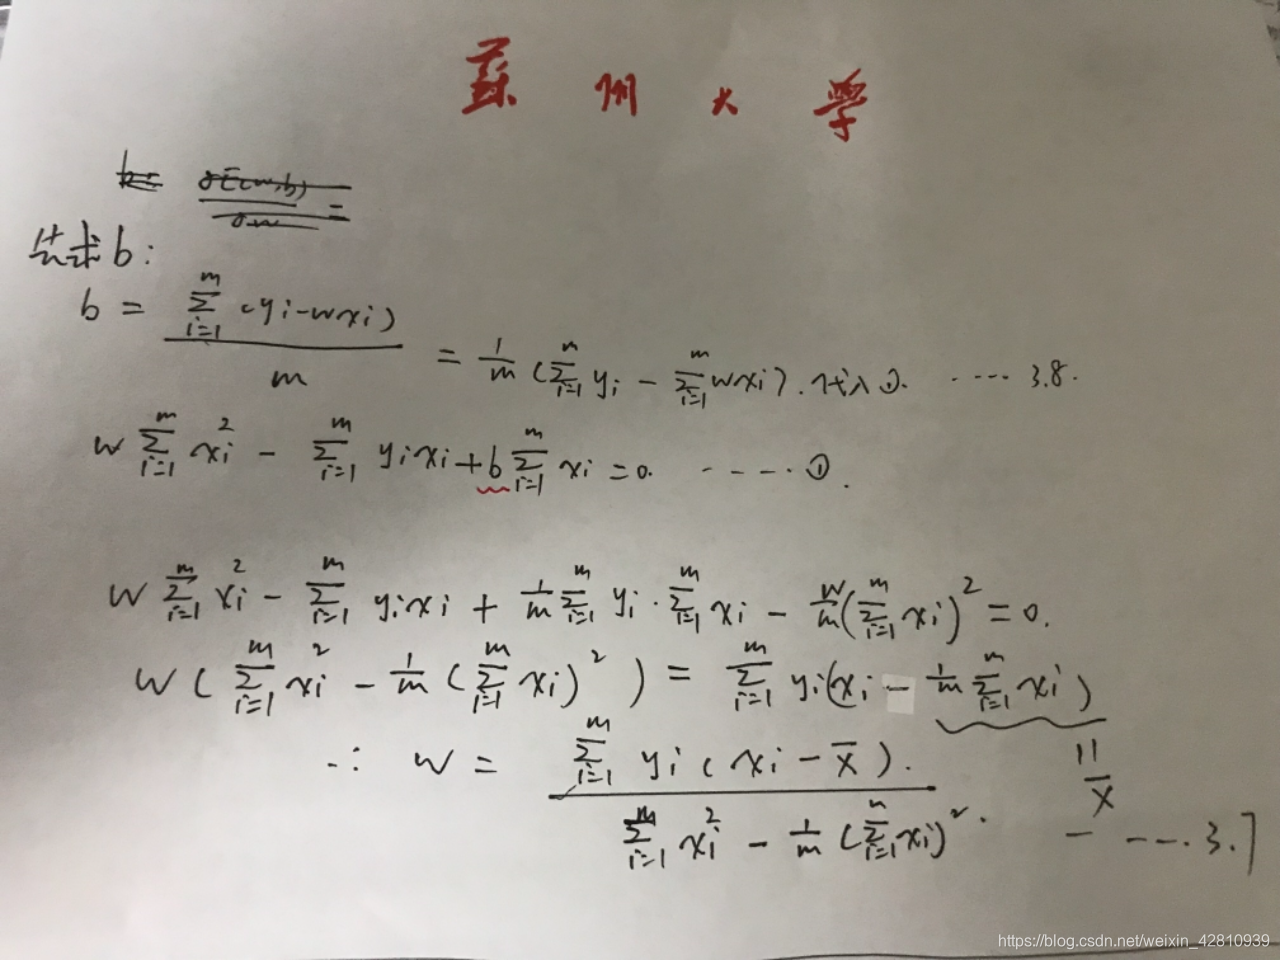 蘇州大学
b= ∂E(w,b)/∂w =
先求b:
b = ∑_{i=1}^{m} (yi-wxi) / m = 1/m (∑_{i=1}^{m} yi - ∑_{i=1}^{m} wxi). 代入①. ..... 3.8.
w ∑_{i=1}^{m} xi² - ∑_{i=1}^{m} yixi + b ∑_{i=1}^{m} xi = 0. ----- ①.
w ∑_{i=1}^{m} xi² - ∑_{i=1}^{m} yixi + 1/m ∑_{i=1}^{m} yi · ∑_{i=1}^{m} xi - w/m (∑_{i=1}^{m} xi)² = 0.
w ( ∑_{i=1}^{m} xi² - 1/m (∑_{i=1}^{m} xi)² ) = ∑_{i=1}^{m} yi(xi - 1/m ∑_{i=1}^{m} xi)
∴ w = ∑_{i=1}^{m} yi (xi - x̄). / ∑_{i=1}^{m} xi² - 1/m (∑_{i=1}^{m} xi)².
= x̄
----- 3.7
https://blog.csdn.net/weixin_42810939